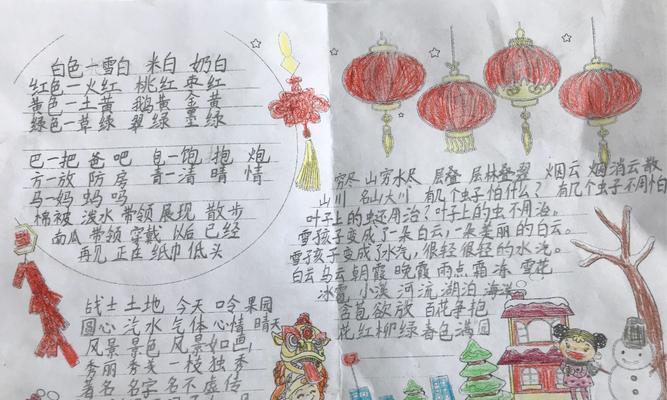 白色一雪白 米白 奶白
红色一火红 桃红 枣红
黄色一土黄 鹅黄 金黄
绿色一草绿 翠绿 墨绿
巴一把 爸 吧 包一饱 抱 炮
方一放 防 房 青一清 晴 情
马一妈 蚂 吗
棉被 泼水 带领 展现 散步
南瓜 带领 穿戴 以后 已经
再见 正在 纸巾 低头
战士 土地 今天 口令 果园
圆心 汽水 气体 心情 晴天
风景 景色 风景如画
秀丽 秀美 一枝独秀
著名 名字 名不虚传
穷尽 山穷水尽 层叠 层林叠翠 烟云 烟消云散
山川 名山大川 有几个虫子怕什么？有几个虫子不用怕
叶子上的虫还用治？叶子上的虫不用治。
雪孩子变成了一朵白云，一朵美丽的白云。
雪孩子变成了水汽，很轻很轻的水汽。
白云 乌云 朝霞 晚霞 雨点 霜冻 雪花
冰雹 小溪 河流 湖泊 海洋
含苞欲放 百花争艳
花红柳绿 春色满园